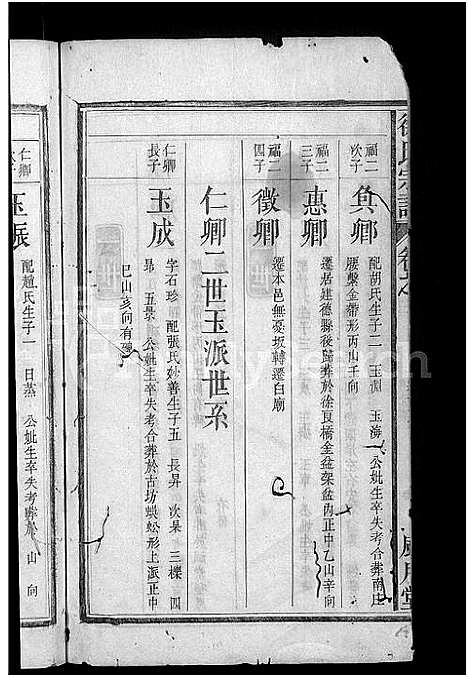 徐氏宗譜
福二次子
兵卿
配胡氏生子二 玉淵 玉海 公妣生卒失考合葬南庄
腰繫金帶形丙山壬向
福二三子
惠卿
遷居建德縣後歸葬於徐貝橋金盆架盆內正中乙山辛向
福二四子
徵卿
遷本邑無憂坂轉遷白廟
仁卿二世玉派世系
仁卿長子
玉成
字石珍 配張氏妙善生子五 長昇 次杲 三櫟 四
昴 五景 公妣生卒失考合葬於古坊蜈蚣形上派正中
巳山亥向有碑
仁卿次子
玉振
配趙氏生子一 日蒸 公妣生卒失考葬於 山 向